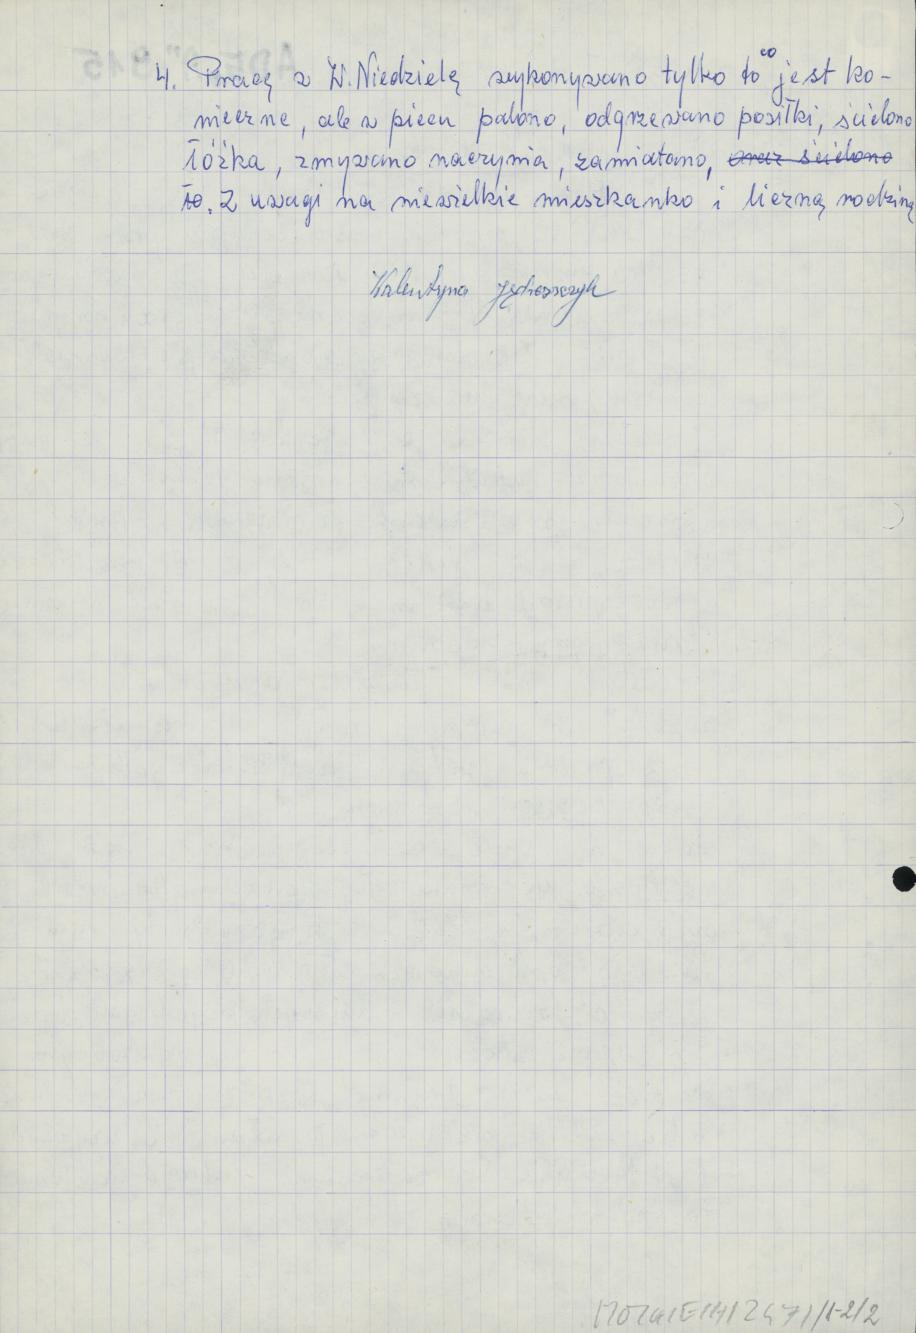 4. Pracę w W. Niedzielę wykonywano tylko to co jest ko-
nieczne, ale w piecu palono, odgrzewano posiłki, ścielono
łóżka, zmywano naczynia, zamiatano, oraz ścielono
łó. Z uwagi na niewielkie mieszkanko i liczną rodzinę
Walentyna